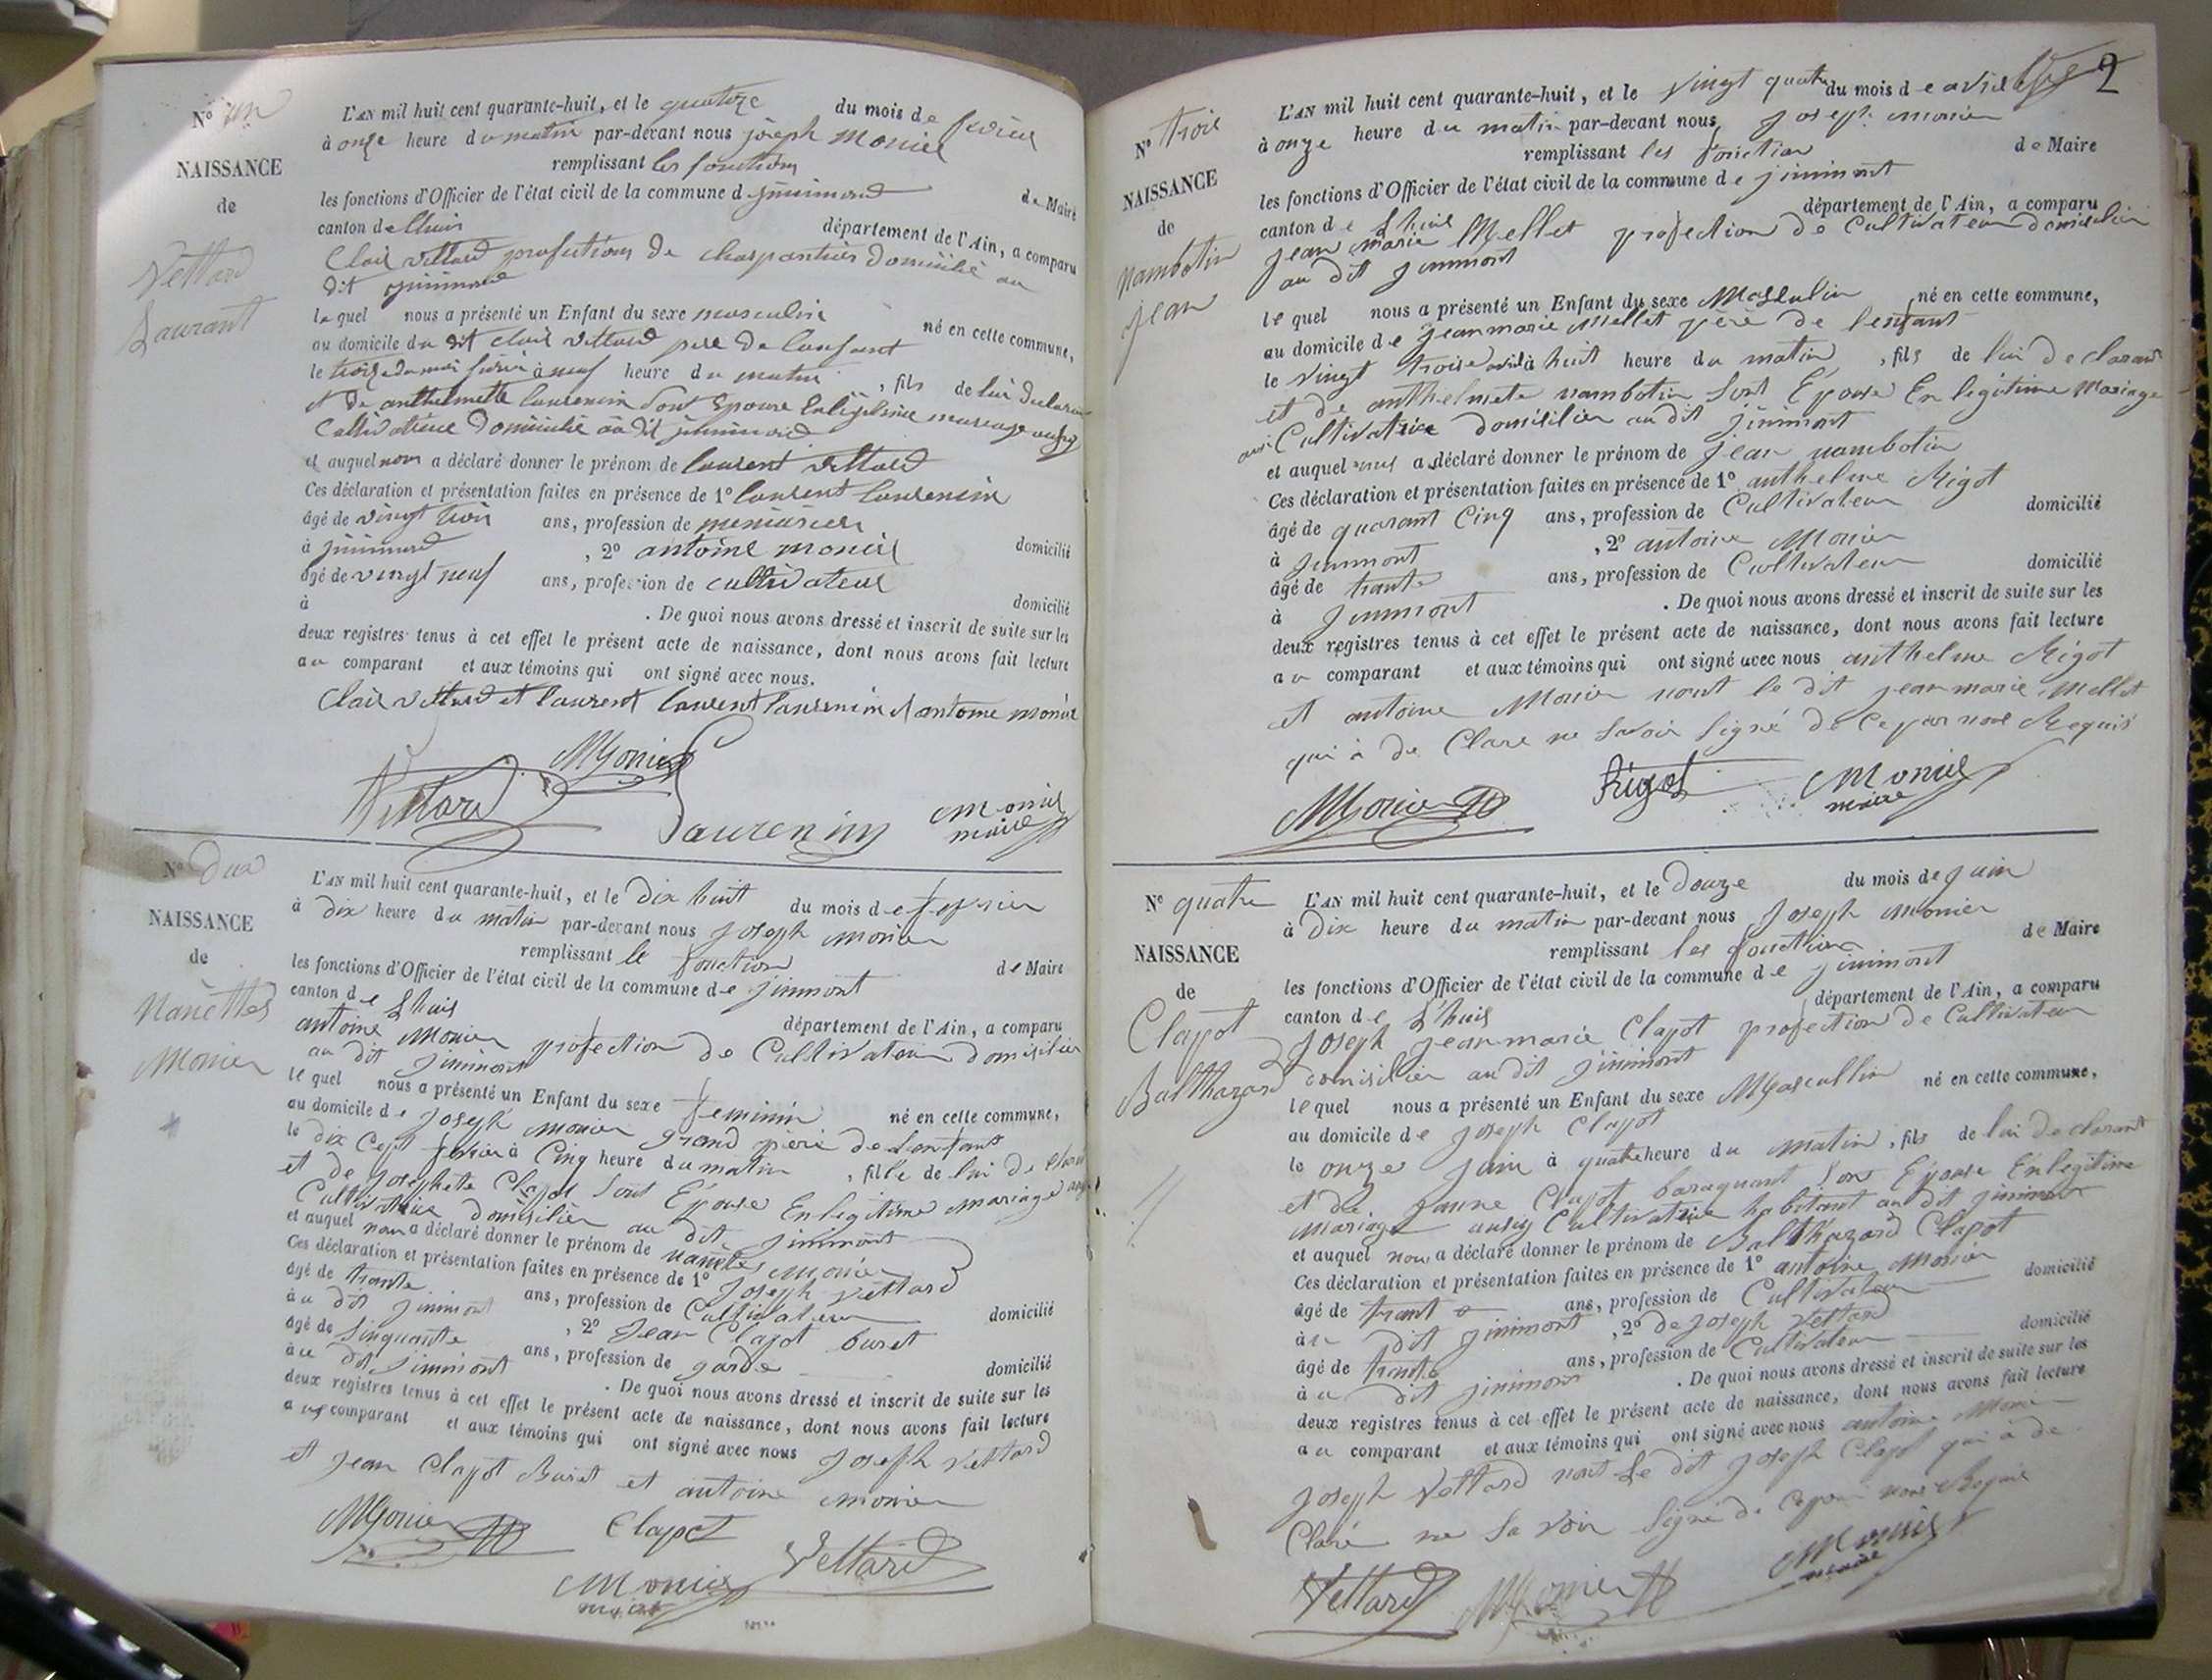 N° un
NAISSANCE
de
Vettard
Laurant
L'AN mil huit cent quarante-huit, et le quatorze du mois de
à onze heure du matin par-devant nous joseph Monier
remplissant les fonctions de Maire
les fonctions d'Officier de l'état civil de la commune d
canton de lhuis département de l'Ain, a comparu
Clair vettard de charpantier domicilié au
dit
lequel nous a présenté un Enfant du sexe masculin né en cette commune,
au domicile du dit clair vettard pere de lanfant
le à neuf heure du matin , fils de lui
et De anthelmette laurencin Sont Epouse mariage
domicilié au dit
et auquel nous a déclaré donner le prénom de laurent vettard
Ces déclaration et présentation faites en présence de 1° laurent laurencin
âgé de vingt trois ans, profession de domicilié
à , 2° antoine monier
âgé de vingt neuf ans, profession de cultivateur domicilié
à . De quoi nous avons dressé et inscrit de suite sur les
deux registres tenus à cet effet le présent acte de naissance, dont nous avons fait lecture
au comparant et aux témoins qui ont signé avec nous.
Clair vettard et laurent laurent laurencin et antoine monier
Monier
Vettard
Laurencin
Monier
maire
N° deux
NAISSANCE
de
Nanettes
Monier
L'AN mil huit cent quarante-huit, et le dix huit du mois de fevrier
à dix heure du matin par-devant nous joseph monier
remplissant le fonction de Maire
les fonctions d'Officier de l'état civil de la commune de jinimont
canton de Lhuis département de l'Ain, a comparu
antoine Monier profection de Cultivateur domisilier
au dit jinimont
lequel nous a présenté un Enfant du sexe feminin né en cette commune,
au domicile de joseph monier grand piere de Lenfant
le dix Cept à Cinq heure du matin , fille de lui
et de josephete Clapot Sont Epouse En legitime mariage
Cultivatrice domisilier au dit jinimont
et auquel nous a déclaré donner le prénom de nanettes Monier
Ces déclaration et présentation faites en présence de 1° Joseph vettard
âgé de trante ans, profession de Cultivateur domicilié
au dit jinimont , 2° Jean Clapot buret
âgé de Sinquante ans, profession de garde domicilié
au dit jinimont . De quoi nous avons dressé et inscrit de suite sur les
deux registres tenus à cet effet le présent acte de naissance, dont nous avons fait lecture
aux comparant et aux témoins qui ont signé avec nous Joseph vettard
et jean Clapot Buret et antoine monier
Monier Clapot
Monier Vettard
maire
2
N° trois
NAISSANCE
de
nambotin
jean
L'AN mil huit cent quarante-huit, et le vingt quatre du mois de avril
à onze heure du matin par-devant nous joseph monier
remplissant les fonction de Maire
les fonctions d'Officier de l'état civil de la commune de jinimont
canton de Lhuis département de l'Ain, a comparu
jean marie Mellet profection de Cultivateur domisilier
au dit jinimont
lequel nous a présenté un Enfant du sexe Masculin né en cette commune,
au domicile de jean marie Mellet père de lenfant
le vingt troise avril à huit heure du matin , fils de lui declarant
et de anthelmete nambotin Sont Epouse En legitime Mariage
Cultivatrice domisilier au dit jinimont
et auquel nous a déclaré donner le prénom de jean nambotin
Ces déclaration et présentation faites en présence de 1° anthelme Rigot
âgé de quarant Cinq ans, profession de Cultivateur domicilié
à jinimont , 2° antoine Monier
âgé de trante ans, profession de Cultivateur domicilié
à jinimont . De quoi nous avons dressé et inscrit de suite sur les
deux registres tenus à cet effet le présent acte de naissance, dont nous avons fait lecture
au comparant et aux témoins qui ont signé avec nous anthelme Rigot
et antoine Monier nont le dit jean marie Mellet
qui à de Clare ne Savoir Signé de Ce par nous Requis
Monier Rigot Monier
maire
N° quatre
NAISSANCE
de
Clapot
Balthazard
L'AN mil huit cent quarante-huit, et le douze du mois de juin
à Dix heure du matin par-devant nous Joseph monier
remplissant les fonction de Maire
les fonctions d'Officier de l'état civil de la commune de jinimont
canton de L'huis département de l'Ain, a comparu
Joseph jean marie Clapot profection de Cultivateur
domisilier au dit jinimont
lequel nous a présenté un Enfant du sexe Mascullin né en cette commune,
au domicile de joseph Clapot
le onze juin à quatre heure du matin , fils de lui declarant
et de Clapot Son Epouse En legitime
mariage Cultivatrice habitant au dit jinimont
et auquel nous a déclaré donner le prénom de Balthazard Clapot
Ces déclaration et présentation faites en présence de 1° antoine Monier
âgé de trant ans, profession de Cultivateur domicilié
au dit jinimont , 2° de joseph vettard
âgé de trante ans, profession de Cultivateur domicilié
au dit jinimont . De quoi nous avons dressé et inscrit de suite sur les
deux registres tenus à cet effet le présent acte de naissance, dont nous avons fait lecture
au comparant et aux témoins qui ont signé avec nous antoine Monier
joseph vettard nont le dit joseph Clapot qui à de
Claré ne Savoir Signé de nous Requis
Vettard Monier Monier
maire